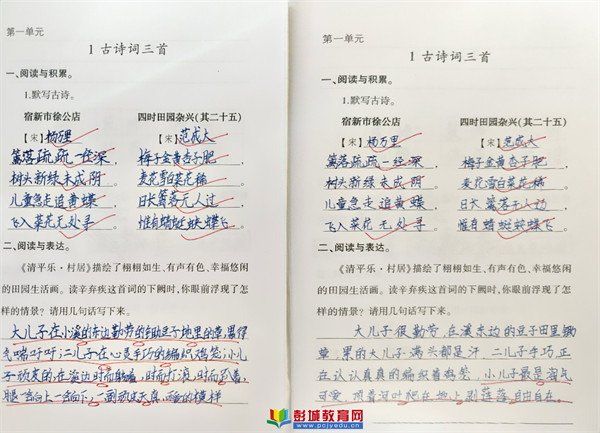 第一单元
1 古诗词三首
一、阅读与积累。
1.默写古诗。
宿新市徐公店
【宋】杨万里
篱落疏疏一径深，
树头新绿未成阴。
儿童急走追黄蝶，
飞入菜花无处寻。
四时田园杂兴(其二十五)
【宋】范成大
梅子金黄杏子肥，
麦花雪白菜花稀。
日长篱落无人过，
惟有蜻蜓蛱蝶飞。
二、阅读与表达。
《清平乐·村居》描绘了栩栩如生、有声有色、幸福悠闲
的田园生活画。读辛弃疾这首词的下阕时,你眼前浮现了怎
样的情景？请用几句话写下来。
大儿子在小溪的东边勤劳的锄豆子地里的草累得
气喘吁吁;二儿子在心灵手巧的编织鸡笼;小儿
子顽皮的在溪边时而 时而打滚,时而
眼 一副 的模样
第一单元
1 古诗词三首
一、阅读与积累。
1.默写古诗。
宿新市徐公店
【宋】杨万里
篱落疏疏一径深，
树头新绿未成阴。
儿童急走追黄蝶，
飞入菜花无处寻。
四时田园杂兴(其二十五)
【宋】范成大
梅子金黄杏子肥，
麦花雪白菜花稀。
日长篱落无人过，
惟有蜻蜓蛱蝶飞。
二、阅读与表达。
《清平乐·村居》描绘了栩栩如生、有声有色、幸福悠闲
的田园生活画。读辛弃疾这首词的下阕时,你眼前浮现了怎
样的情景？请用几句话写下来。
大儿子很勤劳,在溪东边的豆子田里锄
草,累的大儿子满头都是汗 二儿子手巧,正
在认认真真的编织着鸡笼,小儿子最是淘气
可爱,顶着河叶爬在地上剥莲蓬,自由自在。
彭城教育网
www.pcjyedu.cn